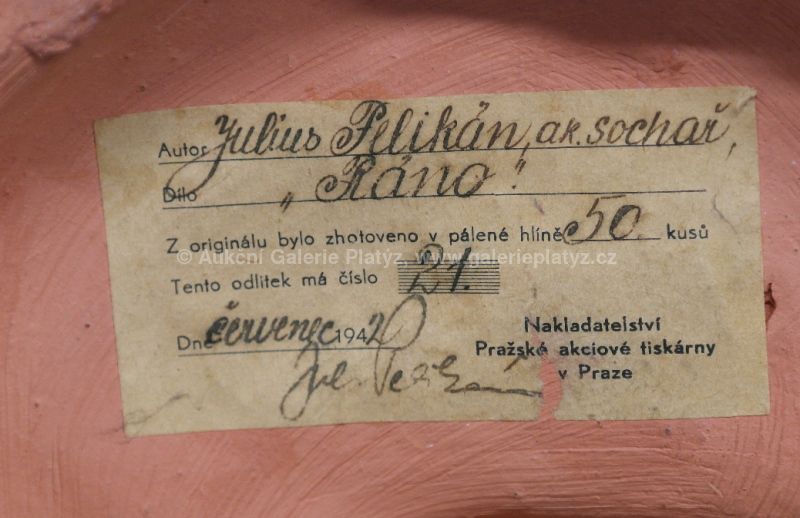 Autor Julius Pelikán, ak. sochař,
Dílo „Ráno“.
Z originálu bylo zhotoveno v pálené hlíně 50. kusů
© Aukční Galerie Platýz, www.galerieplatyz.cz
Tento odlitek má číslo 21.
Dne červenec 1942
Nakladatelství
Pražské akciové tiskárny
v Praze
Jul. Pelikán